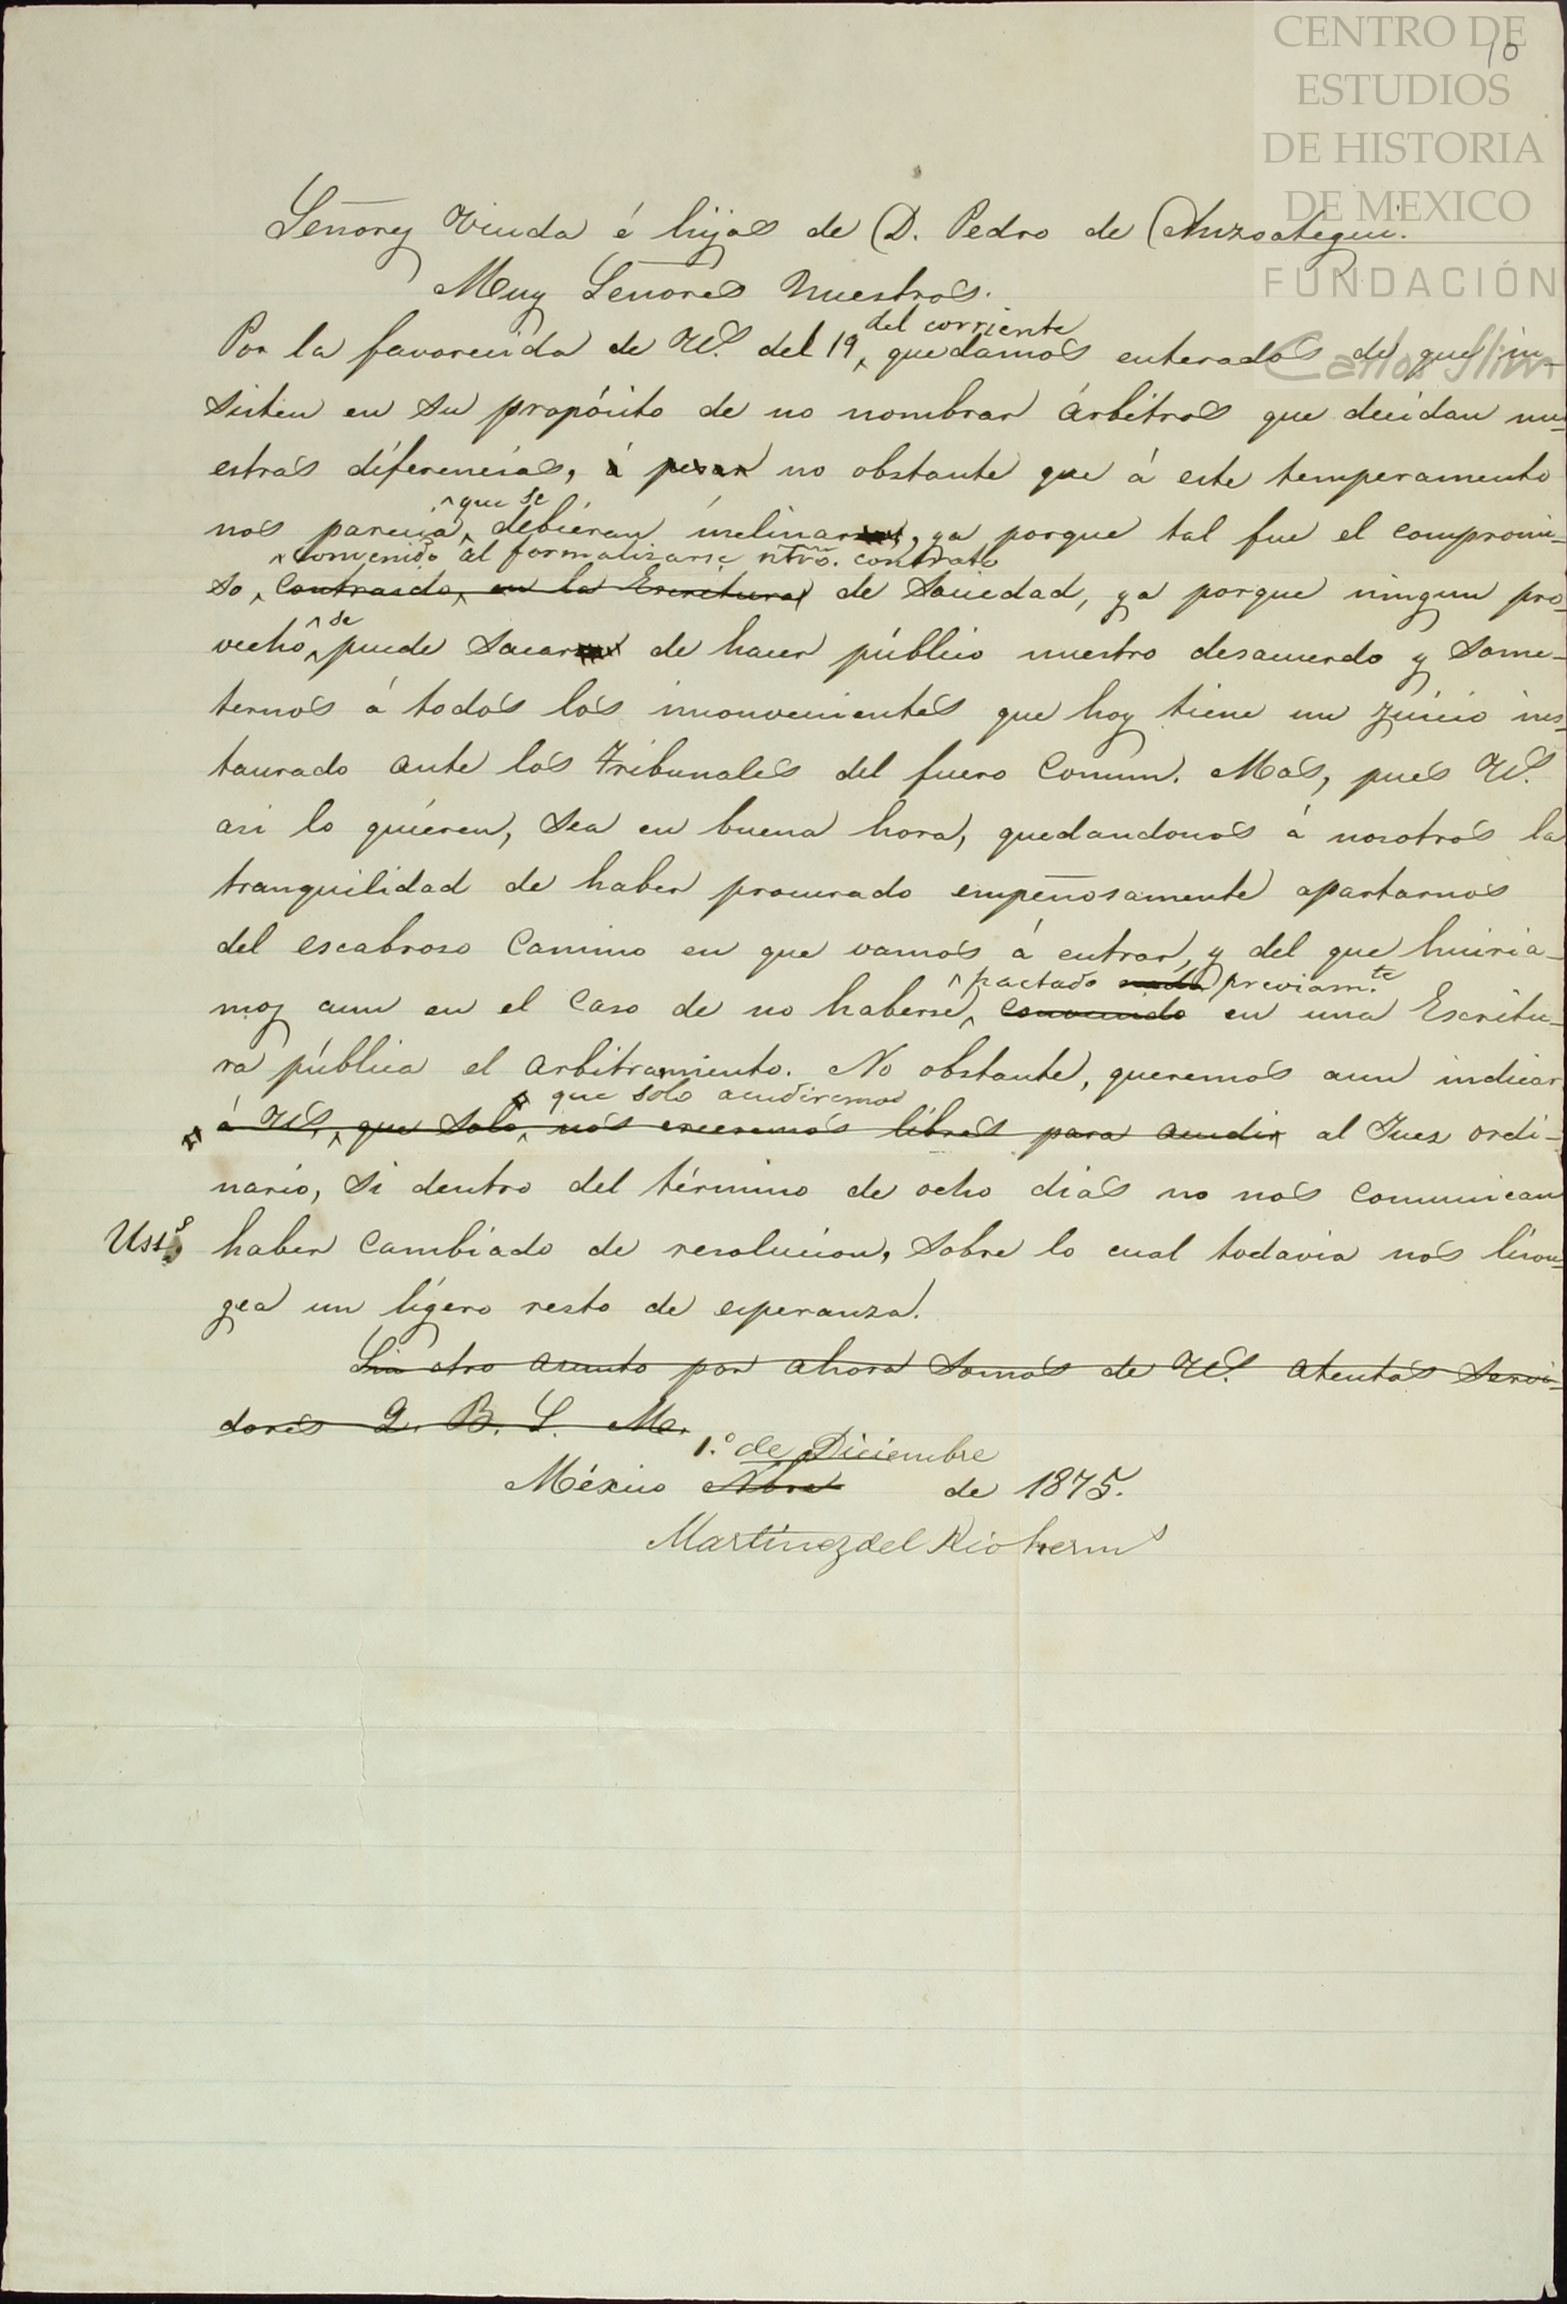 CENTRO DE
ESTUDIOS
DE HISTORIA
DE MEXICO
FUNDACIÓN
Carlos Slim
10
Señores Viuda é hijos de D. Pedro de Anzoategui.
Muy Señores Nuestros.
del corriente
Por la favorecida de VS. del 19, quedamos enterados de que in-
sisten en su propósito de no nombrar árbitros que decidan nu-
estras diferencias, á pesar no obstante que á este temperamento
que se
nos parecia, debieran inclinar, ya porque tal fue el compromi-
convenido al formalizarse ntro. contrato
so, contraido, en la Escritura de Sociedad, ya porque ningun pro-
se
vecho puede sacar de hacer público nuestro desacuerdo y some-
ternos á todos los inconvenientes que hoy tiene un juicio ins-
taurado ante los Tribunales del fuero Comun. Mas, pues VS.
asi lo quieren, sea en buena hora, quedandonos á nosotros la
tranquilidad de haber procurado empeñosamente apartarnos
del escabroso Camino en que vamos á entrar, y del que huiria-
pactado previamte
mos aun en el caso de no haberse, convenido en una Escritu-
ra pública el arbitramiento. No obstante, queremos aun indicar
que solo acudiremos
á VS., que solo, nos creeremos libres para acudir al Juez ordi-
nario, si dentro del término de ocho dias no nos comunican
Usts haber cambiado de resolucion, sobre lo cual todavia nos lison-
gea un ligero resto de esperanza.
Sin otro asunto por ahora somos de VS. atentos servi-
dores Q. B. S. M.
1.º de Diciembre
México Nbre de 1875.
Martinez del Rio hermS